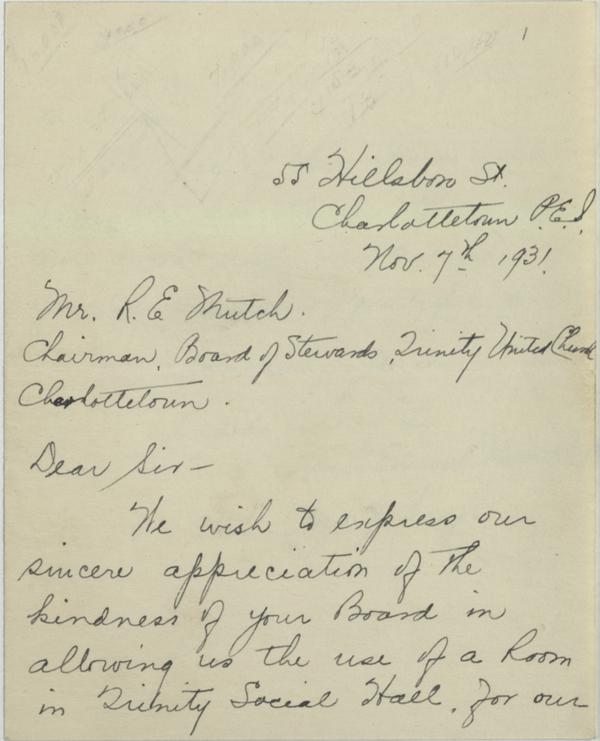 1
55 Hillsboro St.
Charlottetown P.E.I.
Nov. 7th 1931.
Mr. R. E Mutch.
Chairman, Board of Stewards, Trinity United Church
Charlottetown.
Dear Sir-
We wish to express our
sincere appreciation of the
kindness of your Board in
allowing us the use of a Room
in Trinity Social Hall, for our